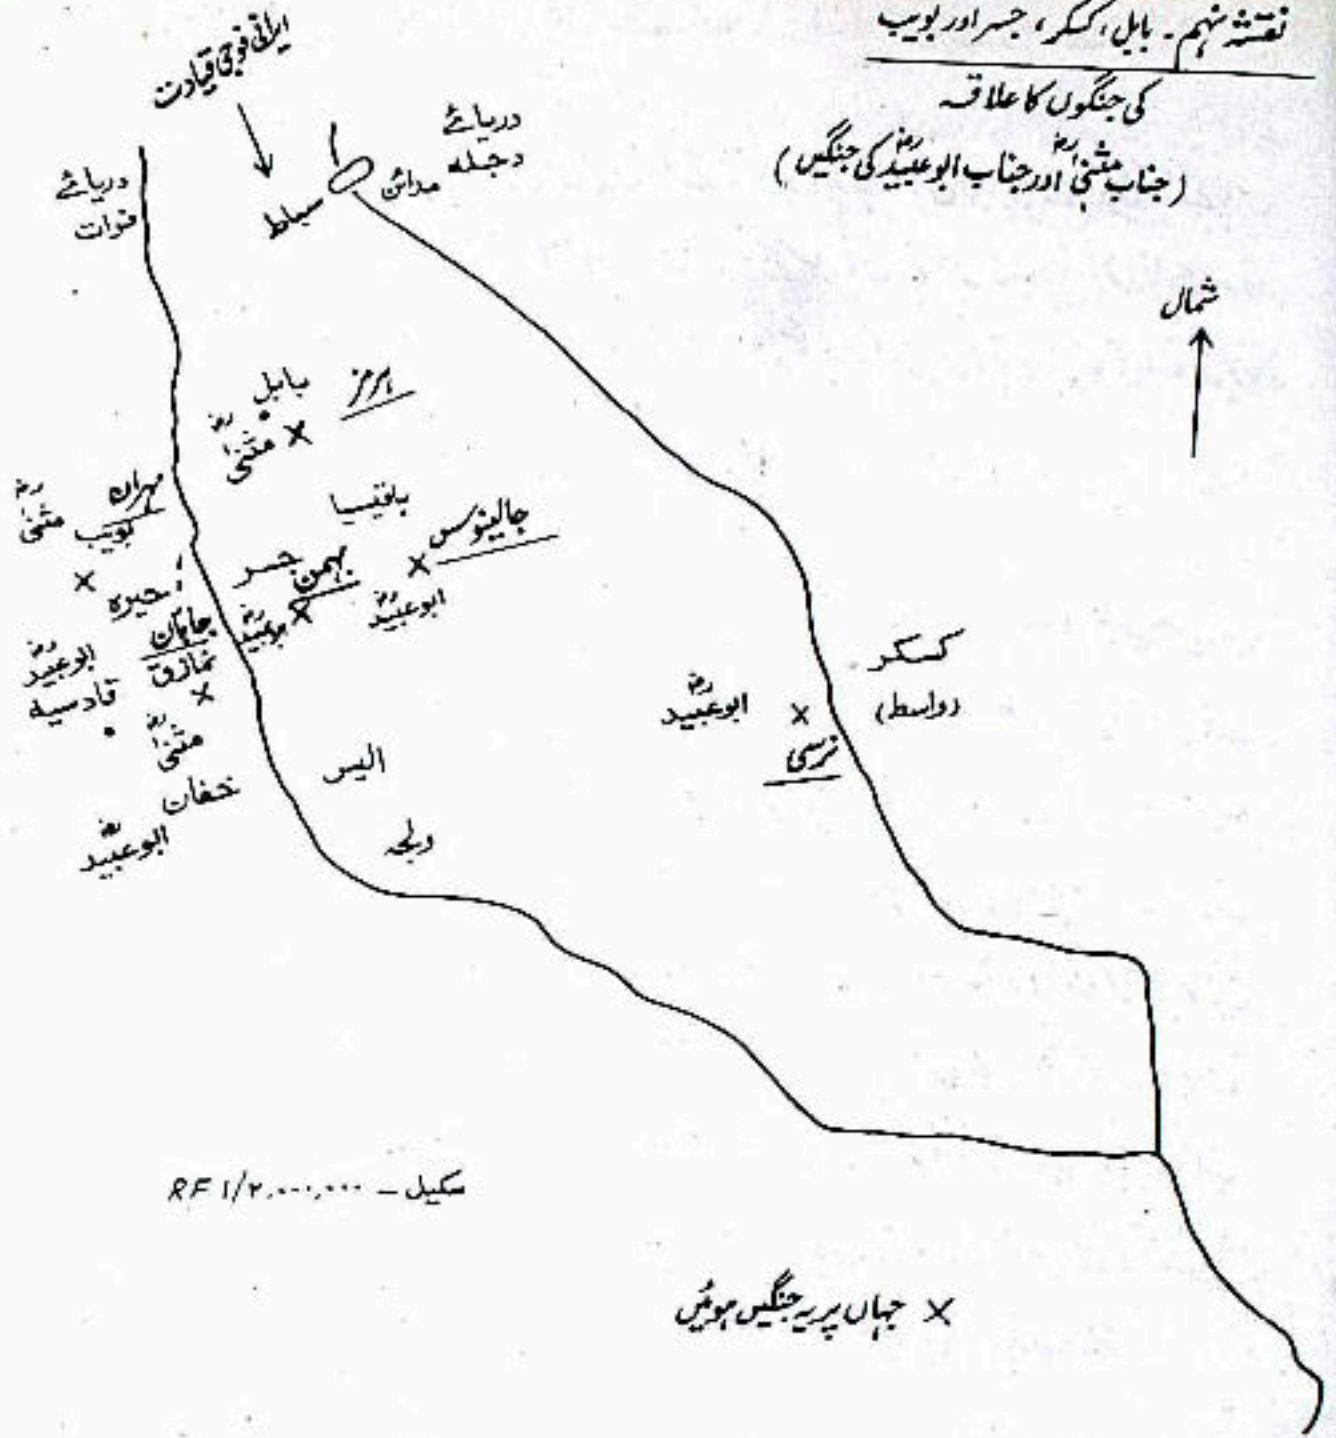 نقشہ نہم - بابل، کسکر، جسر اور بویب
کی جنگوں کا علاقہ
(جناب مثنیٰؓ اور جناب ابوعبیدؓ کی جنگیں)
ایرانی فوجی قیادت
دریائے
دجلہ
مدائن
سباط
دریائے
فرات
شمال
بابل
ہرمز
مثنیٰؓ ×
مہران
بویب
مثنیٰؓ
×
بانقیسیا
جالینوس
×
ابوعبیدؓ
جسر
بہمن
×
بوعبیدؓ
حیرہ
جاپان
نمارق
×
ابوعبیدؓ
قادسیہ
مثنیٰؓ
خفان
ابوعبیدؓ
الیس
ولجہ
کسکر
(واسط)
ابوعبیدؓ ×
نرسی
سکیل - RF ۱/۲,۰۰۰,۰۰۰
× جہاں پر یہ جنگیں ہوئیں